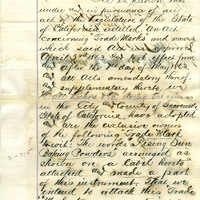 under and in pursuance of an
act of the Legislature of the State
of California entitled, An Act
concerning Trade Marks and names
which said Act was approved
April 3rd 1863 and took effect from
and after the 1st day of May 1863
all Acts amendatory thereof
supplementary thereto, we
in the City and County of Sacramento
State of California have adopted
and are the exclusive owners
of the following Trade Mark
towit: The words Rising Sun
Baking Powders arranged as
shown on a Label hereto
attached and made a part
of this instrument. That we
intend to attach this Trade